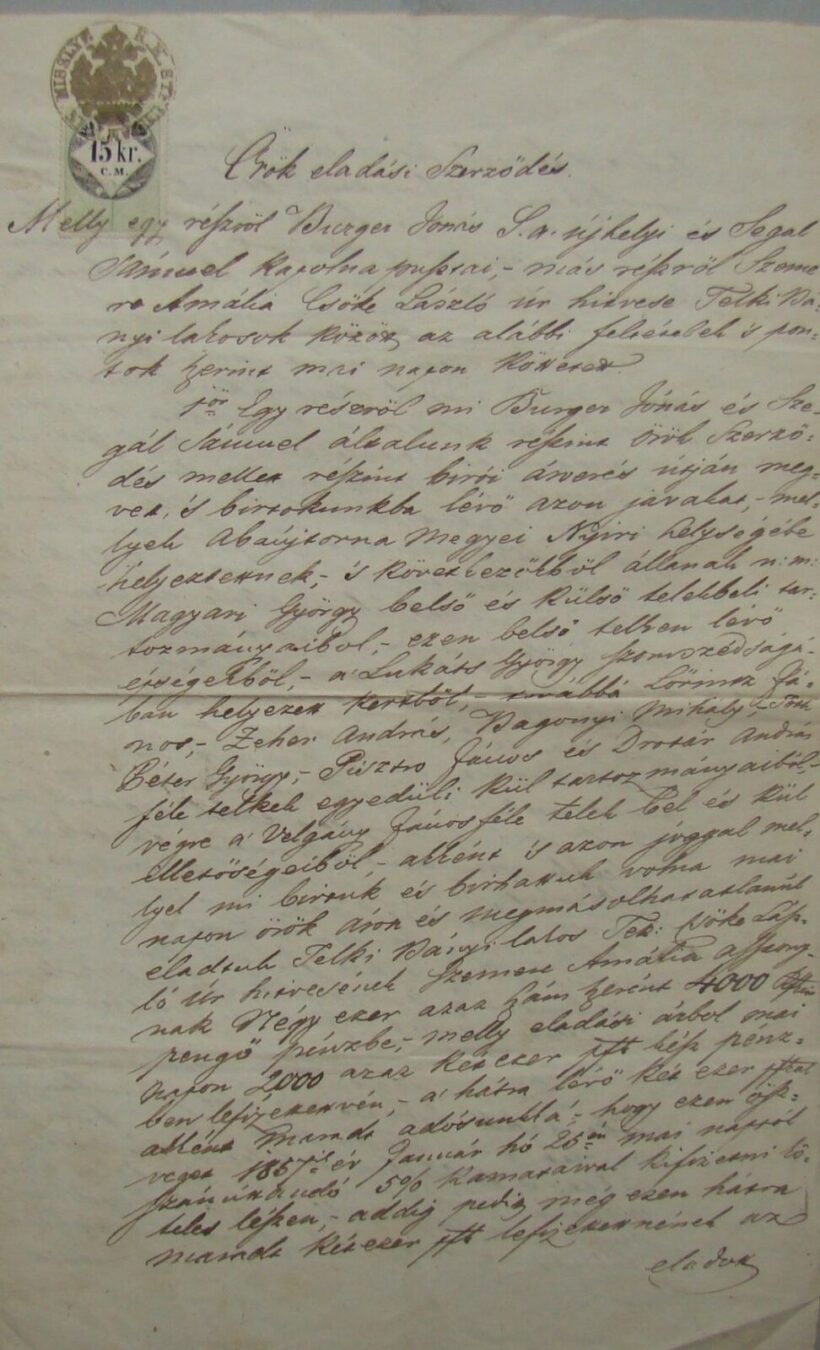 15 kr.
C. M.
Örök eladási Szerződés.
Melly egy részről Burger Jónás S. a. újhelyi és Segal
Sámuel Kapolna pusztai, – más részről Szeme
re Amália Csöke László úr hitvese Telki Bá-
nyi lakosok között az alábbi feltételek 's pon-
tok szerint mai napon köttetett.
1ör Egy részről mi Burger Jónás és Sze-
gál Sámuel általunk részint örök Szerző-
dés mellet részint birói árverés útján meg-
vet, 's birtokunkba lévő azon javakat, – mel-
lyek Abaújtorna Megyei Nyiri helységébe
helyeztettnek, – 's következőkből állanak n: m:
Magyari György belső és külső telekbeli tar-
tozmányaibol, – ezen belső telken lévő
– a' Lukáts György szomszédságá-
ban helyezett kertből, – továbbá Lőrintz Já-
nos, – Zeher András, Bagonyi Mihály, – Tóth
Péter György, – Pisztro János és Drotár András
féle telkek egyedüli kül tartozmányaiból, –
végre a' Velgány János féle telek bel és kül
illetőségeiből, – akként 's azon joggal mel-
lyel mi birtuk és birhattuk volna mai
napon örök áron és megmásolhatatlanúl
eladtuk Telki Bányi lakos Tek: Csöke Lász-
ló Úr hitvesének Szemere Amália asszony-
nak Négy ezer azaz szám szerént 4000
pengő pénzbe, – melly eladási árbol mai
napon 2000 azaz két ezer pft kész pénz-
ben lefizettetvén, – a' hátra lévő két ezer pftal
akként maradt adósunkká, – hogy ezen ösz-
veget 1857ik év Január hó 25én mai naptól
számítandó 5% kamataival kifizetni kö-
teles lészen, – addig pedig még ezen hátra
maradt két ezer pft lefizettetnének az
eladott